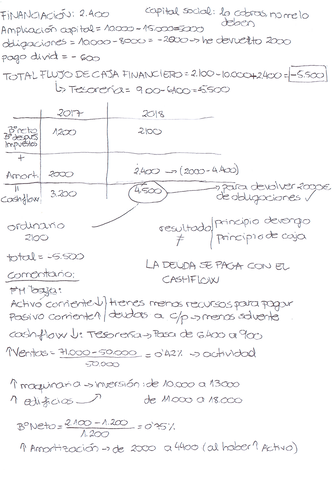 FINANCIACIÓN: 2.400
capital social: lo cobras no me lo deben
Ampliación capital = 10.000 - 15.000 = 5000
obligaciones = 10.000 - 8000 = -2000 → he devuelto 2000
pago divid = -600
TOTAL FLUJO DE CAJA FINANCIERO = 2.100 - 10.000 + 2400 = -5.500
↳ Tesorería = 900 - 6400 = -5500
2017 2018
Bº neto 1200 2100
Bº después impuestos
+
Amort. 2000 2.400 → (2000 - 4.400)
=
Cashflow 3.200 4.500 → para devolver 2000€ de obligaciones ✓
ordinario
2100
resultado ≠ principio devengo / principio de caja
total = -5.500
LA DEUDA SE PAGA CON EL CASHFLOW
comentario:
FM baja:
Activo corriente ↓ tienes menos recursos para pagar
Pasivo corriente ↑ deudas a c/p → menos solvente
cashflow ↓: Tesorería → Pasa de 6.400 a 900
↑ Ventas = 71.000 - 50.000 / 50.000 = 0'42% → actividad
↑ maquinaria → inversión: de 10.000 a 13000
↑ edificios de 11.000 a 18.000
Bº Neto = 2.100 - 1.200 / 1.200 = 0'75%
↑ Amortización → de 2000 a 4400 (al haber ↑ Activo)